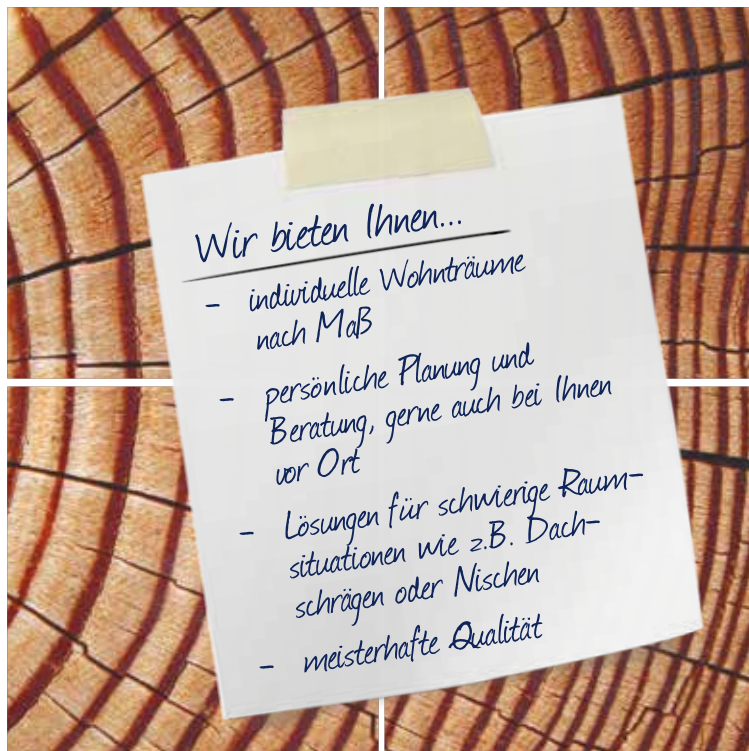 Wir bieten Ihnen...
- individuelle Wohnträume
nach Maß
- persönliche Planung und
Beratung, gerne auch bei Ihnen
vor Ort
- Lösungen für schwierige Raum-
situationen wie z.B. Dach-
schrägen oder Nischen
- meisterhafte Qualität